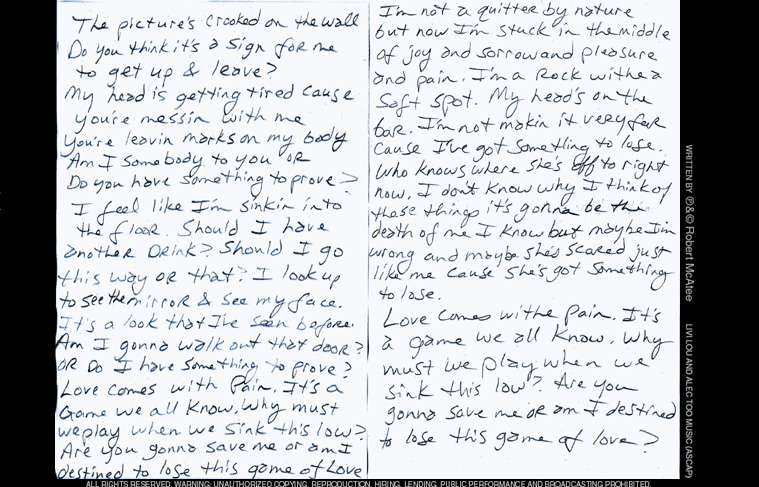 The picture's crooked on the wall
Do you think it's a sign for me
to get up & leave?
My head is getting tired cause
you're messin with me
you're leavin marks on my body
Am I somebody to you OR
Do you have something to prove?
I feel like I'm sinkin into
the floor. Should I have
another Drink? Should I go
this way OR that? I look up
to see the mirror & see my face.
It's a look that I've seen before.
Am I gonna walk out that door?
OR Do I have something to prove?
Love comes with Pain. It's a
Game we all know. Why must
we play when we sink this low?
Are you gonna save me or am I
destined to lose this game of Love
I'm not a quitter by nature
but now I'm stuck in the middle
of joy and sorrow and pleasure
and pain. I'm a Rock with a
Soft spot. My head's on the
bar. I'm not makin it very far
cause I've got something to lose.
Who knows where she's off to right
now. I don't know why I think of
these things it's gonna be the
death of me I know but maybe I'm
wrong and maybe she's scared just
like me cause she's got something
to lose.
Love comes with Pain. It's
a game we all know. Why
must we play when we
sink this low? Are you
gonna save me OR am I destined
to lose this game of love?
WRITTEN BY ℗&© Robert McAtee
LIVI LOU AND ALEC TOO MUSIC (ASCAP)
ALL RIGHTS RESERVED. WARNING: UNAUTHORIZED COPYING, REPRODUCTION, HIRING, LENDING, PUBLIC PERFORMANCE AND BROADCASTING PROHIBITED.